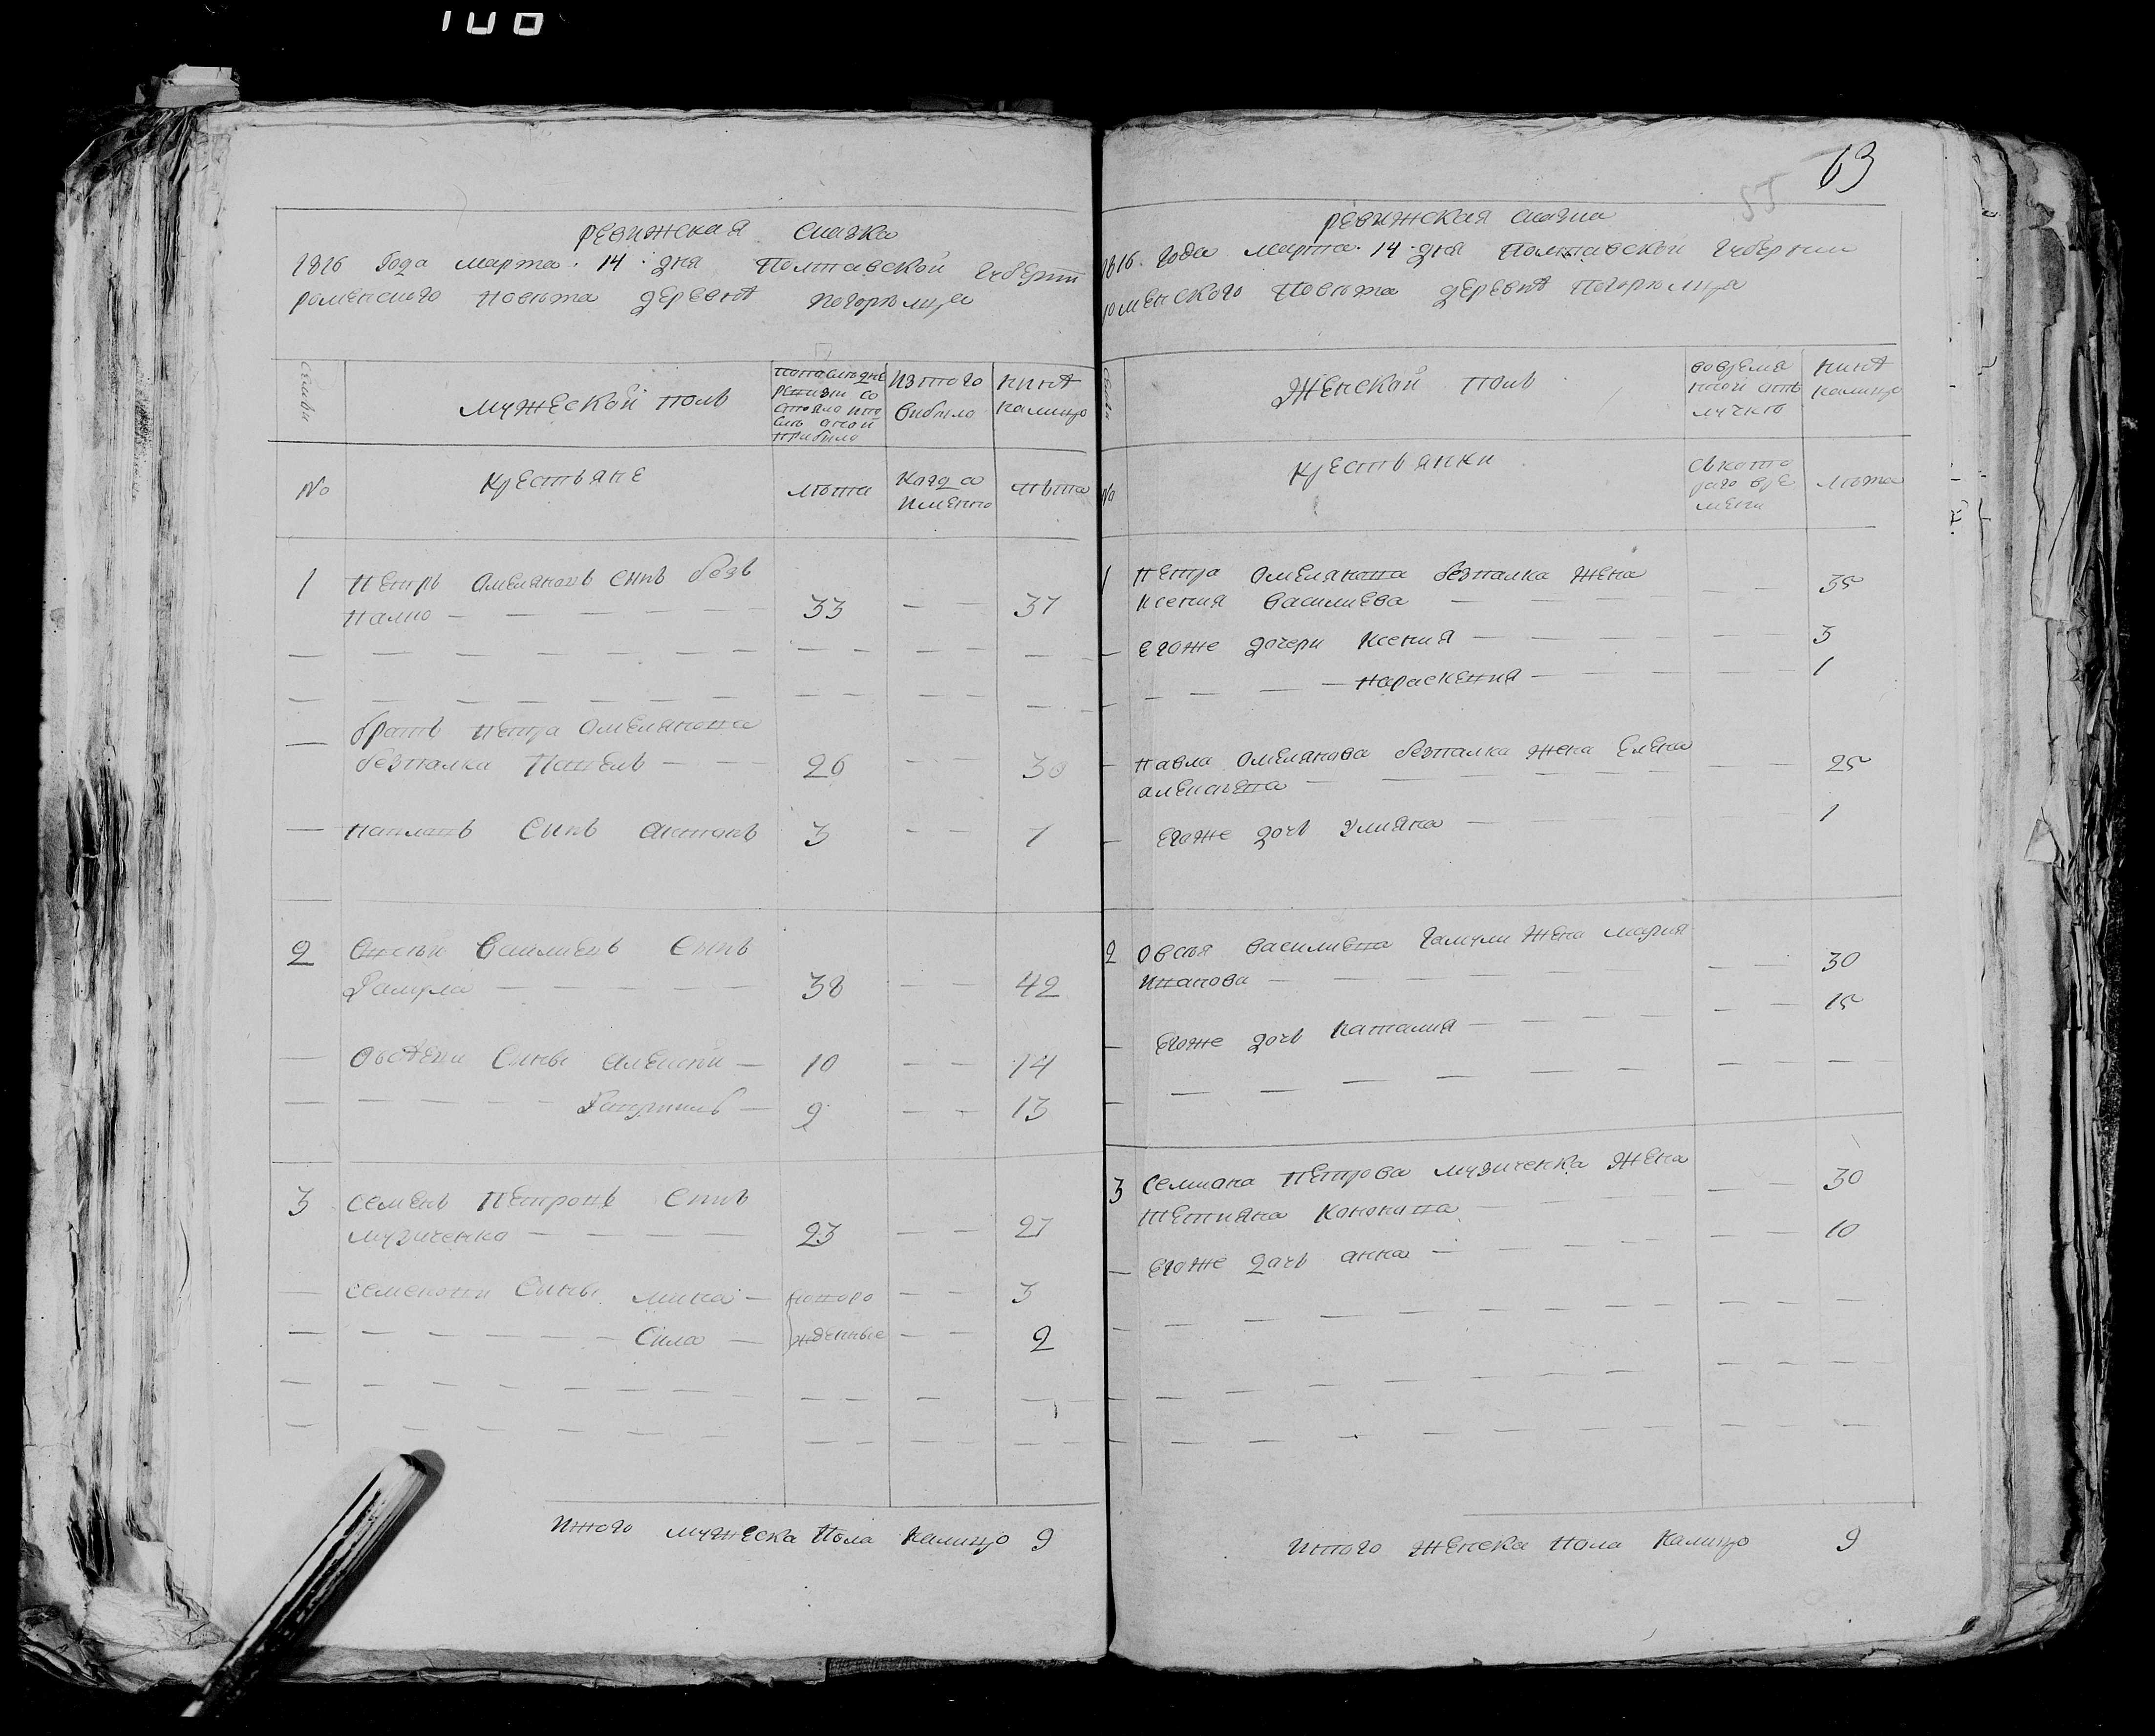 100
ревижская сказка
1816 Года марта 14 дня Полтавской губерни
роменского повѣта деревнѣ погорѣлица
семьи
мужеской полъ
попоследне
ревизи со
стояло и по
слѣ оной
прибыло
изтого
выбыло
нинѣ
налицо
No
крестьяне
лѣта
Когда
именно
лѣта
1
Петръ Омеляновъ сынъ без
палко
33
37
братъ Петра Омелянова
безпалка Павелъ
26
30
Павловъ сынъ антонъ
3
7
2
Овсѣй Василиевъ сынъ
Гамула
38
42
Овсѣеви сыны алексѣй
10
14
Гавриилъ
9
13
3
семенъ Петровъ сынъ
музиченко
23
27
семенови сыны мина
новоро
3
сила
жденные
2
Итого мужеска пола налицо 9
63
55
ревижская сказка
1816 года марта 14 дня полтавской губернии
роменского повѣта деревнѣ погорѣлица
семьи
женской полъ
вовремя
ной отъ
лучкѣ
нинѣ
налицо
No
крестьянки
съкото
раго вре
мени
лѣта
1
петра омелянова безпалка жена
ксения василиева
35
егоже дочери ксения
3
параскевия
1
павла омелянова безпалка жена елена
алексѣева
25
егоже дочь улияна
1
2
овсѣя василиева гамули жена мария
иванова
30
егоже дочь наталия
15
3
семиона петрова музиченка жена
тетияна кононова
30
егоже дочь анна
10
итого женска пола налицо 9